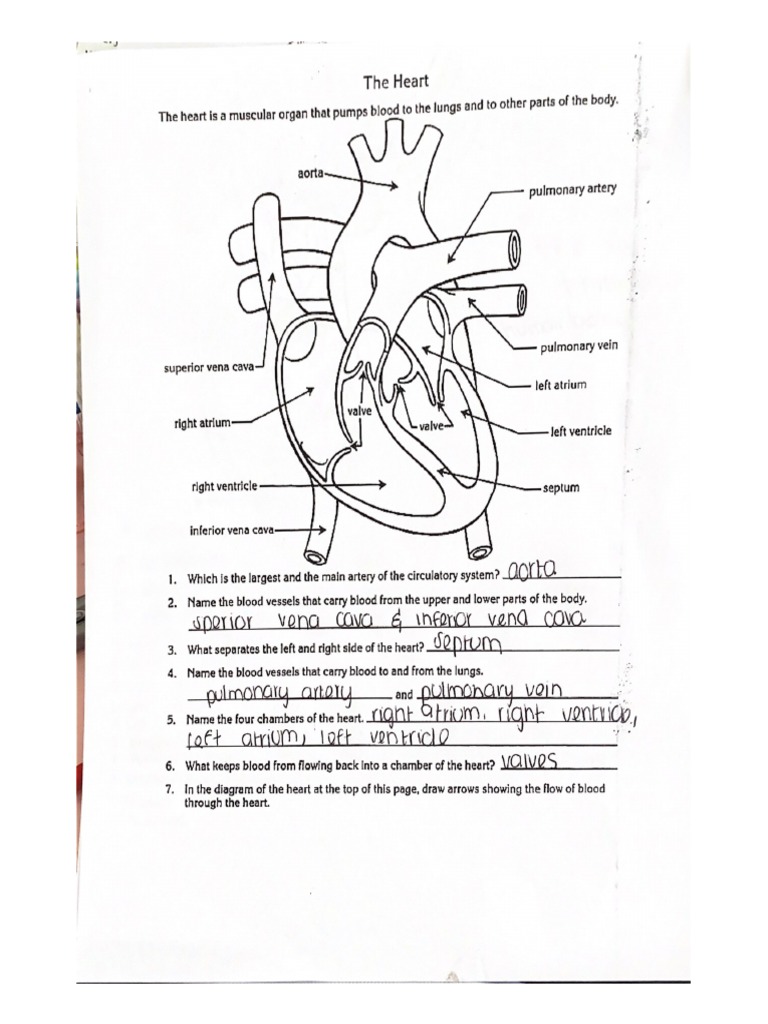 The Heart
The heart is a muscular organ that pumps blood to the lungs and to other parts of the body.
aorta
pulmonary artery
superior vena cava
pulmonary vein
left atrium
right atrium
valve
valve
left ventricle
right ventricle
septum
inferior vena cava
1. Which is the largest and the main artery of the circulatory system? aorta
2. Name the blood vessels that carry blood from the upper and lower parts of the body.
sperior vena cava & inferior vena cava
3. What separates the left and right side of the heart? septum
4. Name the blood vessels that carry blood to and from the lungs.
pulmonary artery and pulmonary vein
5. Name the four chambers of the heart. right atrium, right ventricle,
left atrium, left ventricle
6. What keeps blood from flowing back into a chamber of the heart? valves
7. In the diagram of the heart at the top of this page, draw arrows showing the flow of blood
through the heart.